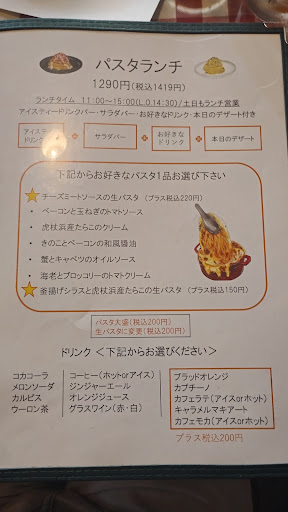 パスタランチ
1290円(税込1419円)
ランチタイム 11:00~15:00(L.O.14:30)/土日もランチ営業
アイスティードリンクバー・サラダバー・お好きなドリンク・本日のデザート付き
アイスティー
ドリンクバー
+
サラダバー
+
お好きな
ドリンク
+
本日のデザート
下記からお好きなパスタ1品お選び下さい
チーズミートソースの生パスタ (プラス税込220円)
・ ベーコンと玉ねぎのトマトソース
・ 虎杖浜産たらこのクリーム
・ きのことベーコンの和風醤油
・ 蟹とキャベツのオイルソース
・ 海老とブロッコリーのトマトクリーム
釜揚げシラスと虎杖浜産たらこの生パスタ (プラス税込150円)
パスタ大盛(税込200円)
生パスタに変更(税込200円)
ドリンク <下記からお選びください>
コカコーラ
メロンソーダ
カルピス
ウーロン茶
コーヒー(ホットorアイス)
ジンジャーエール
オレンジジュース
グラスワイン(赤・白)
ブラッドオレンジ
カプチーノ
カフェラテ(アイスorホット)
キャラメルマキアート
カフェモカ(アイスorホット)
プラス税込200円